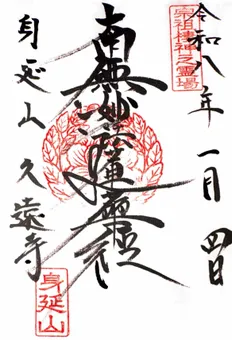 令和八年 一月 四日
宗祖棲神之霊場
南無妙法蓮華経
身延山 久遠寺
身延山